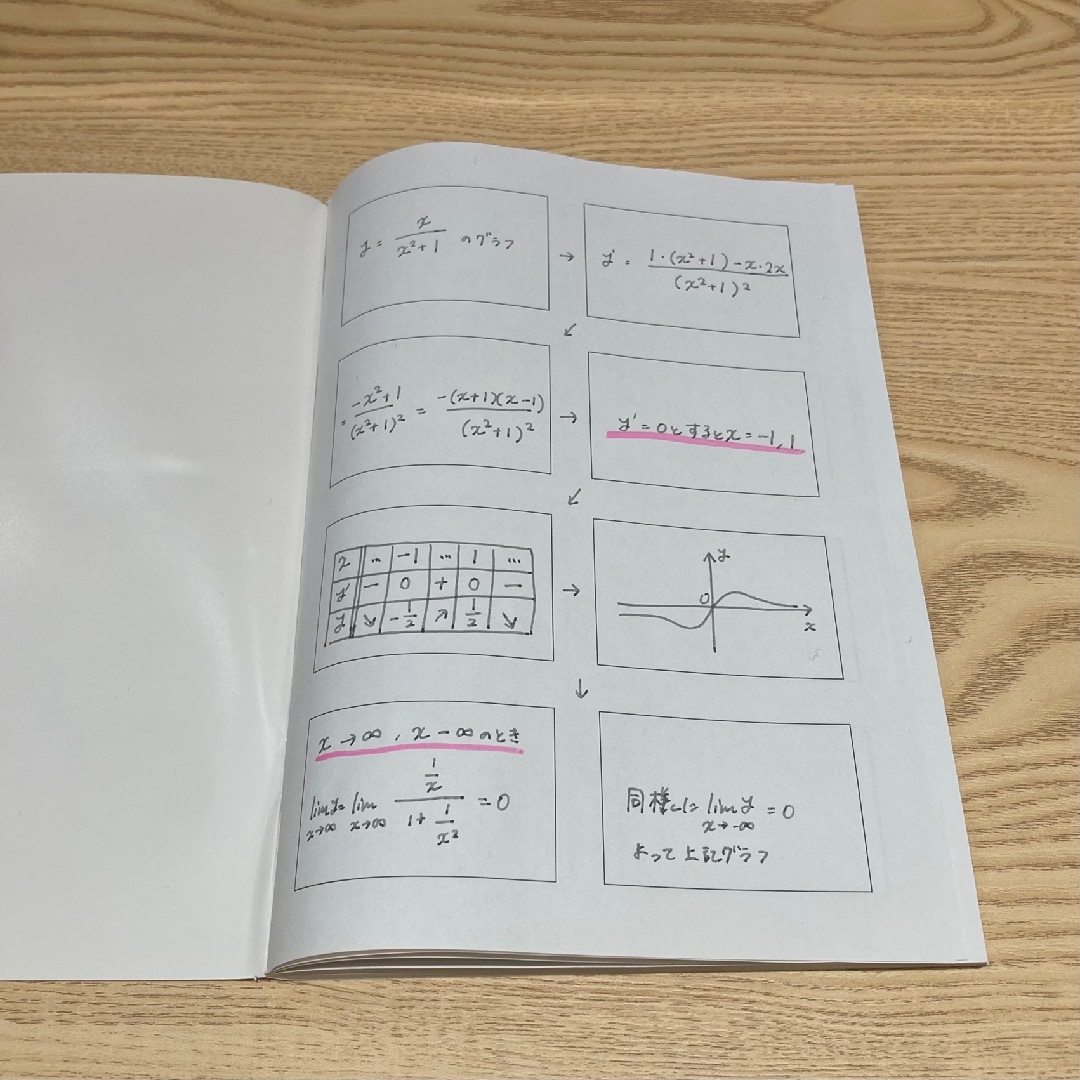 y = x/(x²+1) のグラフ
→
y' = (1・(x²+1)-x・2x)/(x²+1)²
↙
= (-x²+1)/(x²+1)² = (-(x+1)(x-1))/(x²+1)²
→
y'=0とするとx=-1,1
↙
x … -1 … 1 …
y' - 0 + 0 -
y ↘ -1/2 ↗ 1/2 ↘
→
y
0
x
↓
x→∞, x-∞のとき
lim y = lim (1/x)/(1+1/x²) = 0
x→∞ x→∞
同様にlim y = 0
x→-∞
よって上記グラフ